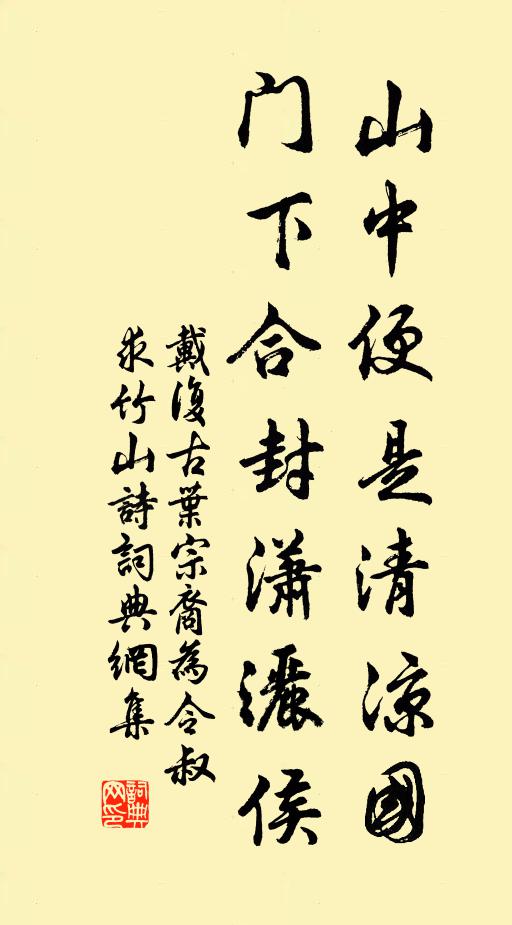 山中便是清涼國
门下合封瀟灑侯
戴復古葉宗裔為令叔
求竹山詩詞典網集
詞典网印